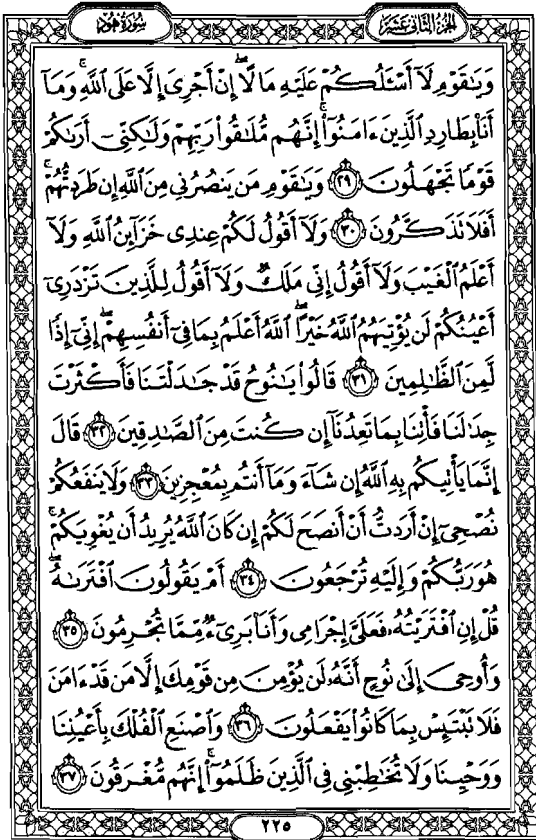 سُورَةُ هُودٍ
الجزء الثاني عشر
وَيَٰقَوْمِ لَآ أَسْـَٔلُكُمْ عَلَيْهِ مَالًا ۖ إِنْ أَجْرِىَ إِلَّا عَلَى ٱللَّهِ ۚ وَمَآ
أَنَا۠ بِطَارِدِ ٱلَّذِينَ ءَامَنُوٓا۟ ۚ إِنَّهُم مُّلَٰقُوا۟ رَبِّهِمْ وَلَٰكِنِّىٓ أَرَىٰكُمْ
قَوْمًا تَجْهَلُونَ ٢٩ وَيَٰقَوْمِ مَن يَنصُرُنِى مِنَ ٱللَّهِ إِن طَرَدتُّهُمْ ۚ
أَفَلَا تَذَكَّرُونَ ٣٠ وَلَآ أَقُولُ لَكُمْ عِندِى خَزَآئِنُ ٱللَّهِ وَلَآ
أَعْلَمُ ٱلْغَيْبَ وَلَآ أَقُولُ إِنِّى مَلَكٌ وَلَآ أَقُولُ لِلَّذِينَ تَزْدَرِىٓ
أَعْيُنُكُمْ لَن يُؤْتِيَهُمُ ٱللَّهُ خَيْرًا ۖ ٱللَّهُ أَعْلَمُ بِمَا فِىٓ أَنفُسِهِمْ ۖ إِنِّىٓ إِذًا
لَّمِنَ ٱلظَّٰلِمِينَ ٣١ قَالُوا۟ يَٰنُوحُ قَدْ جَٰدَلْتَنَا فَأَكْثَرْتَ
جِدَٰلَنَا فَأْتِنَا بِمَا تَعِدُنَآ إِن كُنتَ مِنَ ٱلصَّٰدِقِينَ ٣٢ قَالَ
إِنَّمَا يَأْتِيكُم بِهِ ٱللَّهُ إِن شَآءَ وَمَآ أَنتُم بِمُعْجِزِينَ ٣٣ وَلَا يَنفَعُكُمْ
نُصْحِىٓ إِنْ أَرَدتُّ أَنْ أَنصَحَ لَكُمْ إِن كَانَ ٱللَّهُ يُرِيدُ أَن يُغْوِيَكُمْ ۚ
هُوَ رَبُّكُمْ وَإِلَيْهِ تُرْجَعُونَ ٣٤ أَمْ يَقُولُونَ ٱفْتَرَىٰهُ ۖ
قُلْ إِنِ ٱفْتَرَيْتُهُۥ فَعَلَىَّ إِجْرَامِى وَأَنَا۠ بَرِىٓءٌ مِّمَّا تُجْرِمُونَ ٣٥
وَأُوحِىَ إِلَىٰ نُوحٍ أَنَّهُۥ لَن يُؤْمِنَ مِن قَوْمِكَ إِلَّا مَن قَدْ ءَامَنَ
فَلَا تَبْتَئِسْ بِمَا كَانُوا۟ يَفْعَلُونَ ٣٦ وَٱصْنَعِ ٱلْفُلْكَ بِأَعْيُنِنَا
وَوَحْيِنَا وَلَا تُخَٰطِبْنِى فِى ٱلَّذِينَ ظَلَمُوٓا۟ ۚ إِنَّهُم مُّغْرَقُونَ ٣٧
٢٢٥